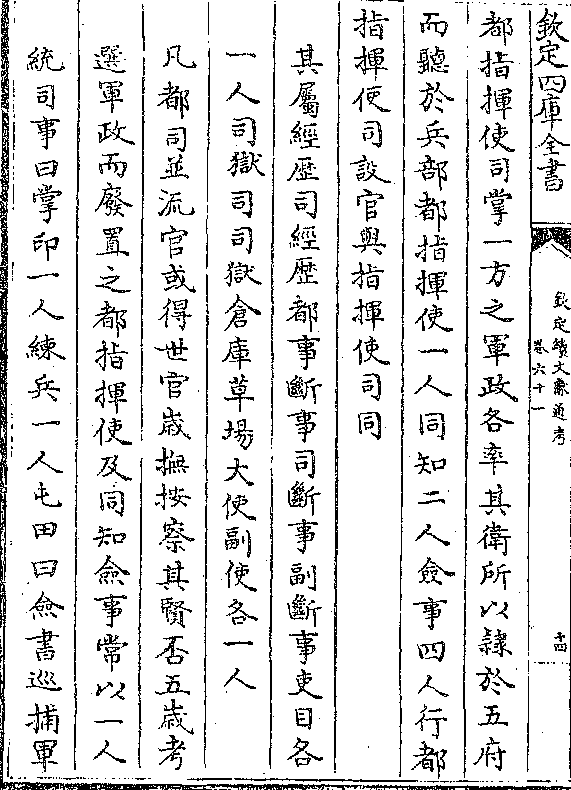 欽定四庫全書
欽定續文獻通考
卷六十一
十四
都指揮使司掌一方之軍政各率其衛所以隸於五府
而聽於兵部都指揮使一人同知二人僉事四人行都
指揮使司設官與指揮使司同
其屬經歴司經歴都事斷事司斷事副斷事吏目各
一人司獄司司獄倉庫草場大使副使各一人
凡都司並流官或得世官嵗撫按察其賢否五嵗考
選軍政而廢置之都指揮使及同知僉事常以一人
統司事曰掌印一人練兵一人屯田曰僉書巡捕軍